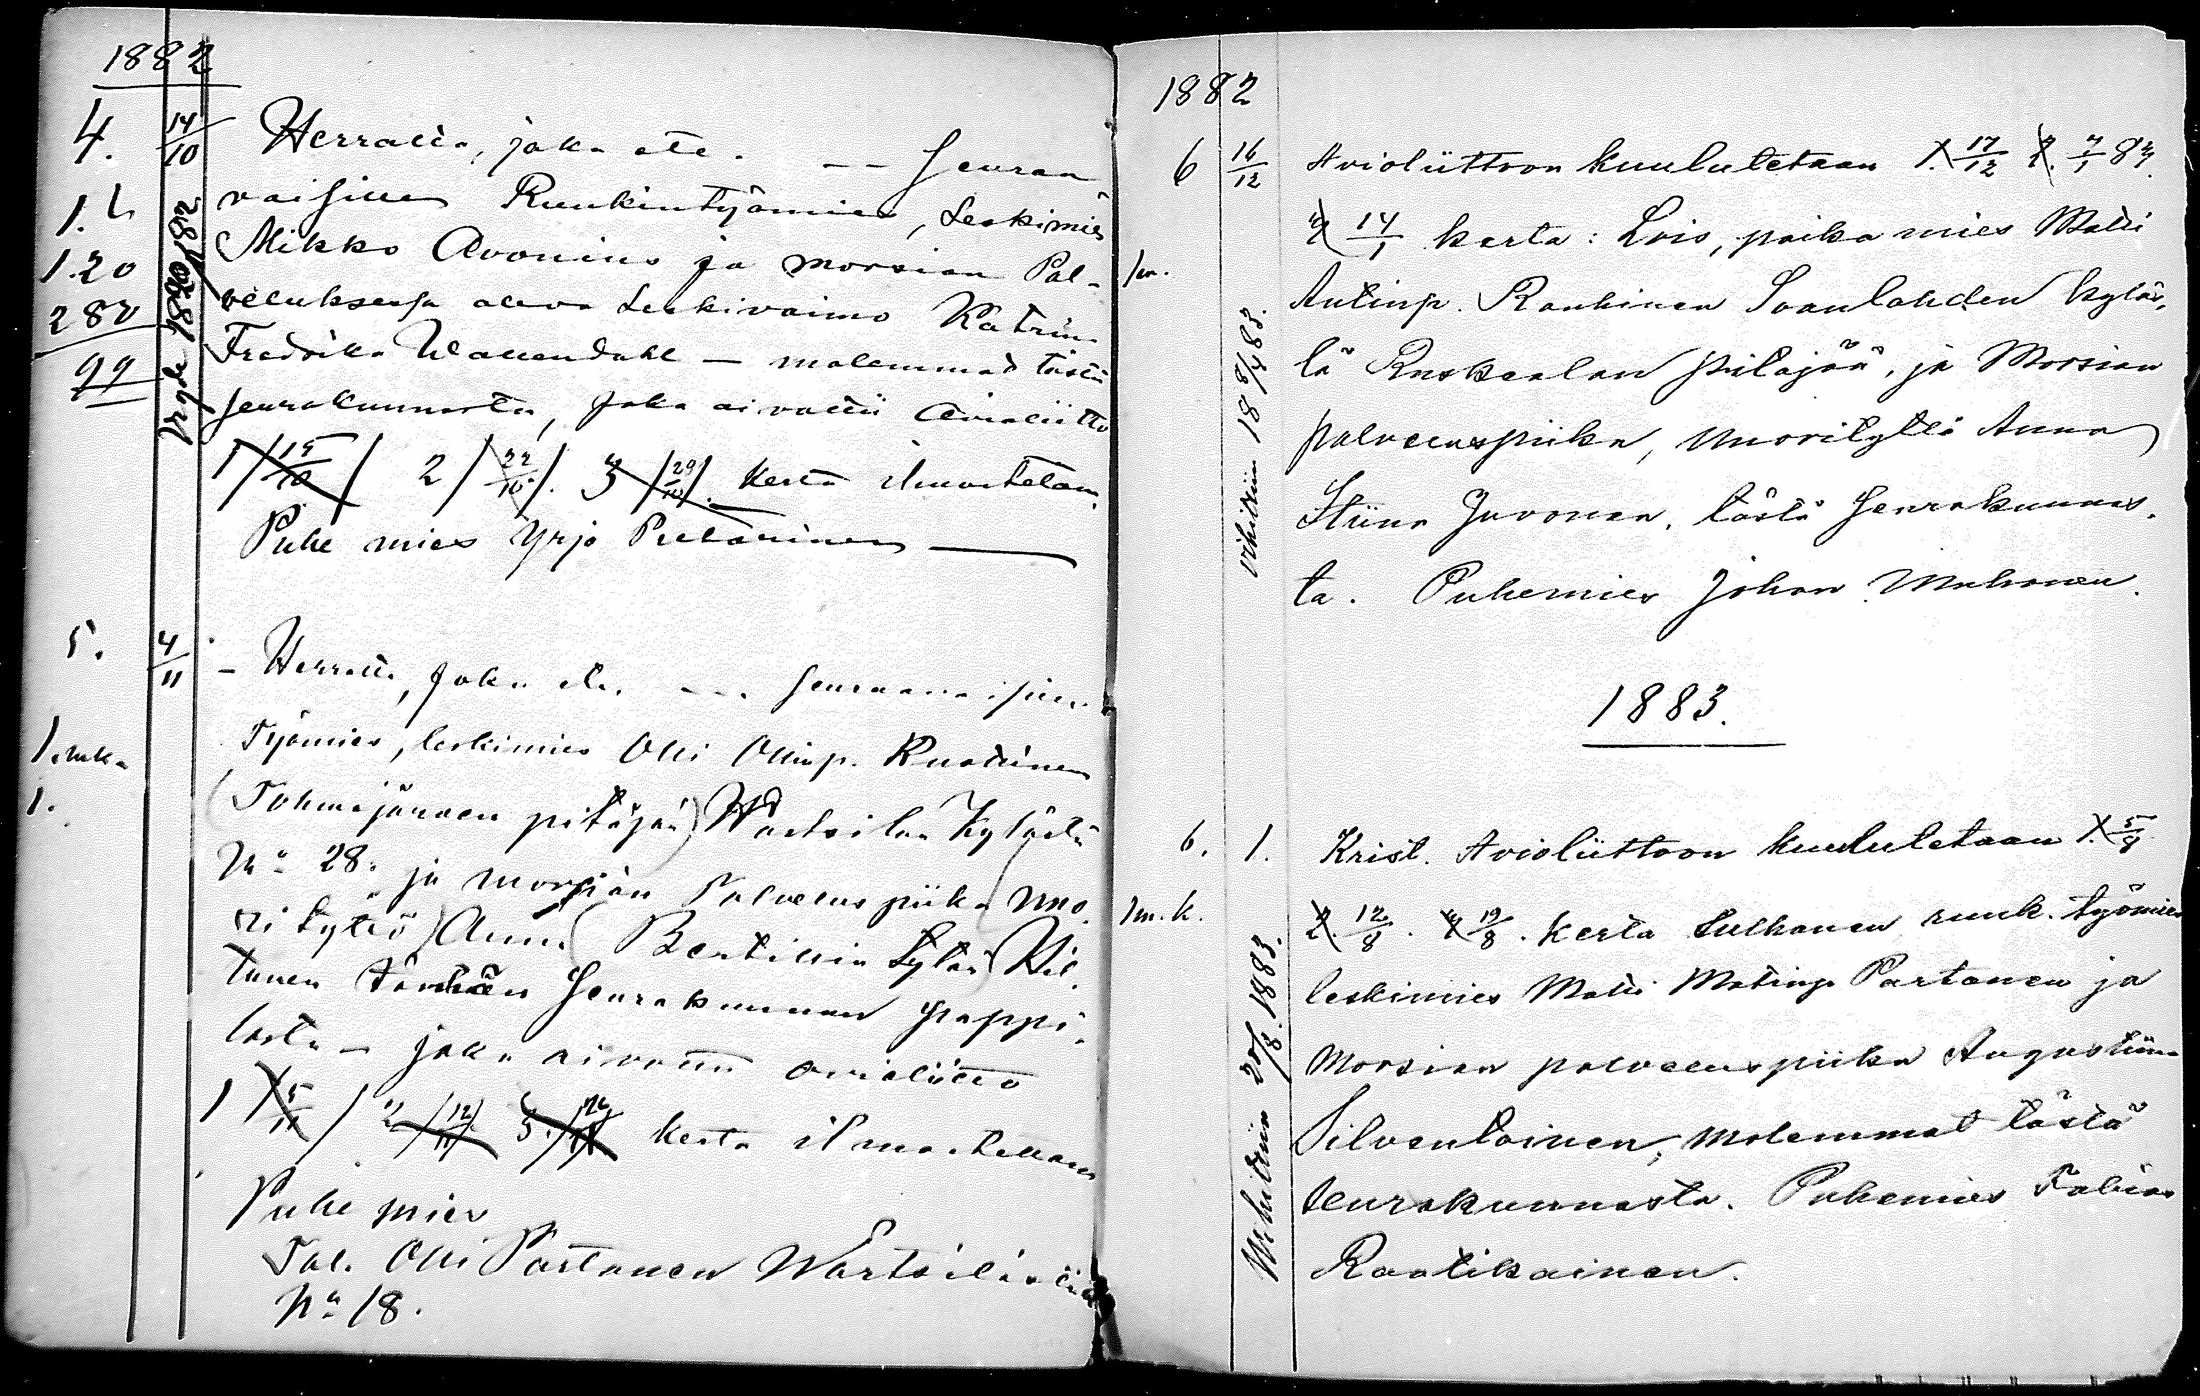 1882
4. 14/10 Herralle, joka etc. — — Seuraa-
vaisille Ruukintyömies, Leskimies
Mikko Avonius ja morsian Pal-
veluksessa oleva Leskivaimo Katrina
Fredrika — molemmad tästä
seurakunnasta, joka aivottu Avioliitto
1/15/10/ 2/22/10/. 3/29/10/. kerta ilmoitetaan.
Puhe mies Yrjö
1.
1.20
280
99
5. 4/11 — Herralle, Joka etc. — — . seuraavaisille
Työmies, leskimies Olli Ollinp.
(Tohmajärven pitäjää) Wärtsilän Kylästä
No 28. ja morsian Palvelus piika nuo-
ri tyttö) Anna (Bertillin tytär)
tämän Seurakunnan pappi-
lasta — joka aivottu avioliitto
1/5/11/ 2/12/11/. 3./11 kerta ilmoitetaan
Puhe mies
Tal. Olli Partanen Wärtsilästä
No 18.
1.mka
1.
1882
6 16/12 Avioliittoon kuulutetaan 1. 17/12 2. 7/1 83.
3 14/1 kerta: Lois, poika mies Matti
Antinp. Raukinen Soanlahden kyläs-
lä Ruskealan pitäjää, ja Morsian
palveluspiika, nuorityttö Anna
Stiina Juvonen, tästä Seurakunnas-
ta. Puhemies Johan Muhonen.
1m.
vihittiin 18 8/4 83.
1883.
6. 1. Krist. Avioliittoon kuulutetaan 1. 5/8
2. 12/8. 3 19/8. kerta Sulhanen ruuk. työmies
leskimies Matti Matinp Partanen ja
Morsian palveluspiika Augustiina
Silventoinen, molemmat tästä
seurakunnasta. Puhemies Fabian
Raatikainen.
1m.k.
Wihittiin 1883.